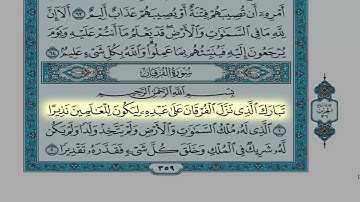 أَمْرِهِۦٓ أَن تُصِيبَهُمْ فِتْنَةٌ أَوْ يُصِيبَهُمْ عَذَابٌ أَلِيمٌ ٦٣ أَلَآ إِنَّ
لِلَّهِ مَا فِى ٱلسَّمَٰوَٰتِ وَٱلْأَرْضِ قَدْ يَعْلَمُ مَآ أَنتُمْ عَلَيْهِ وَيَوْمَ
يُرْجَعُونَ إِلَيْهِ فَيُنَبِّئُهُم بِمَا عَمِلُوا۟ وَٱللَّهُ بِكُلِّ شَىْءٍ عَلِيمٌۢ ٦٤
سُورَةُ الفُرْقَانِ
بِسْمِ ٱللَّهِ ٱلرَّحْمَٰنِ ٱلرَّحِيمِ
تَبَارَكَ ٱلَّذِى نَزَّلَ ٱلْفُرْقَانَ عَلَىٰ عَبْدِهِۦ لِيَكُونَ لِلْعَٰلَمِينَ نَذِيرًا
١ ٱلَّذِى لَهُۥ مُلْكُ ٱلسَّمَٰوَٰتِ وَٱلْأَرْضِ وَلَمْ يَتَّخِذْ وَلَدًا وَلَمْ يَكُن
لَّهُۥ شَرِيكٌ فِى ٱلْمُلْكِ وَخَلَقَ كُلَّ شَىْءٍ فَقَدَّرَهُۥ تَقْدِيرًا ٢
٣٥٩